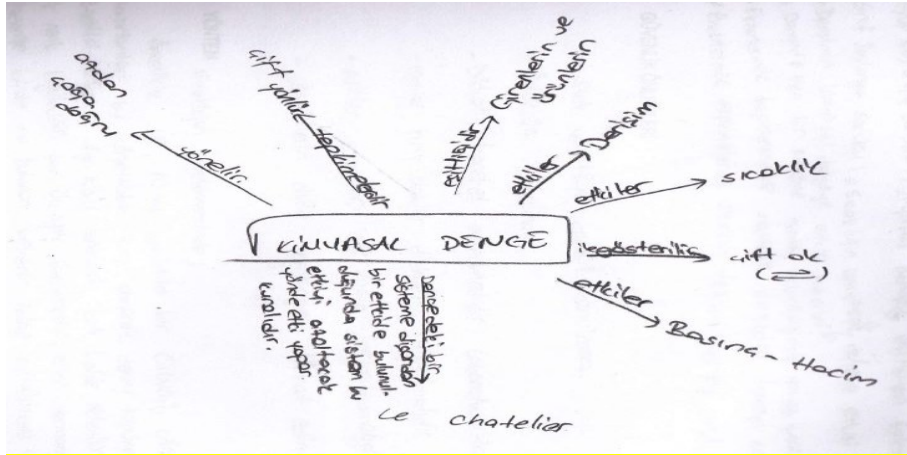 azdan
çoğa
doğru
yönelir.
çift yönlü tepkimelerdir
eşitliğidir
Girenlerin ve
ürünlerin
etkiler
Derişim
etkiler
sıcaklık
KİMYASAL DENGE
ile gösterilir
çift ok
(⇌)
etkiler
Basınç - Hacim
Dengedeki bir
sisteme dışarıdan
bir etkide bulunul-
duğunda sistem bu
etkiyi azaltacak
yönde etki yapar.
kuralıdır.
Le chatelier